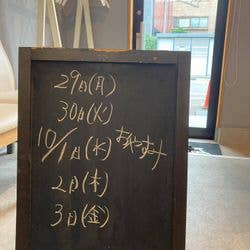 29日(月)
30日(火)
10/1日(水) おやすみ
2日(木)
3日(金)